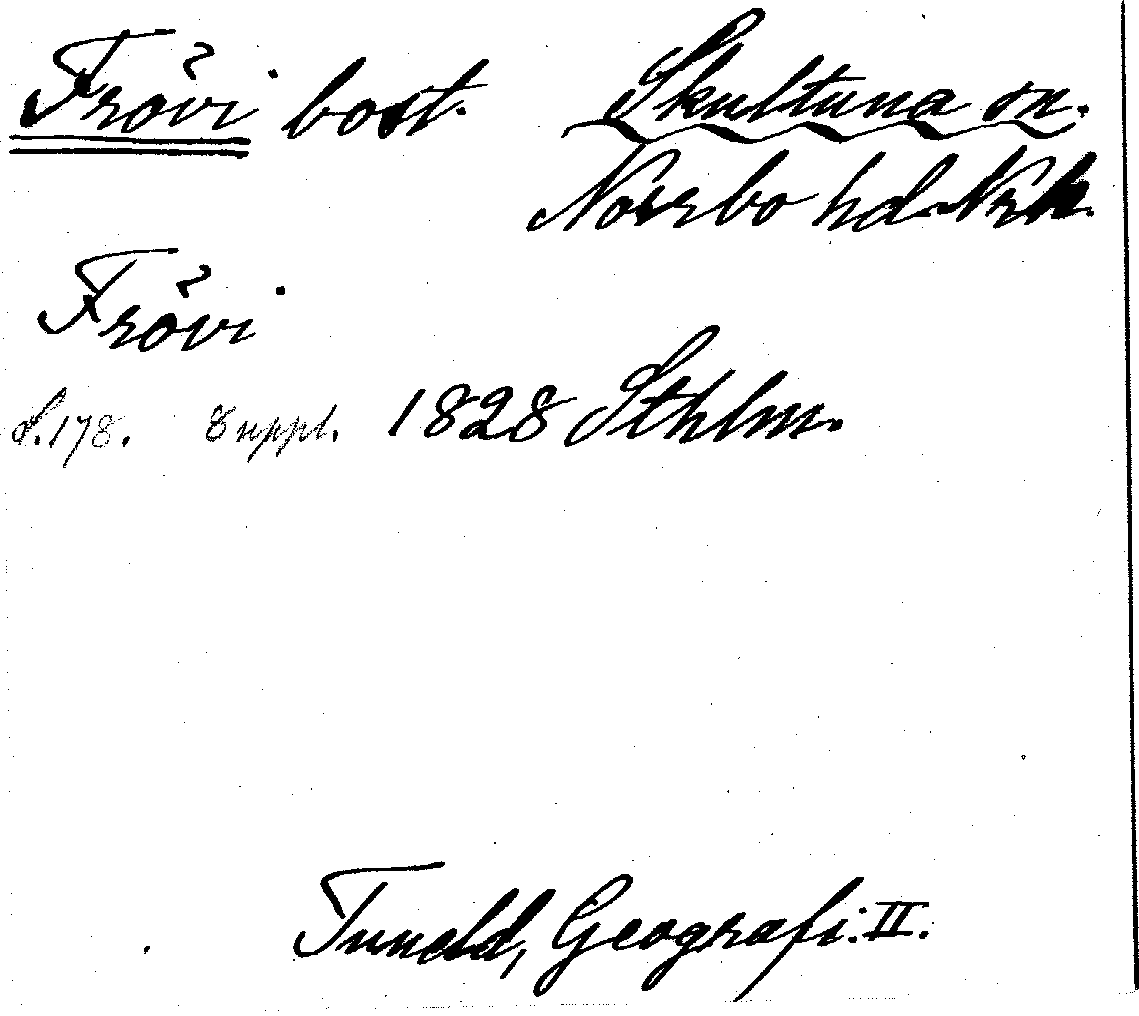 Frövi bost. Skultuna sn.
Norrbo hd.
Frövi
S. 178. Suppl. 1828 Sthlm.
Tuneld, Geografi. II.